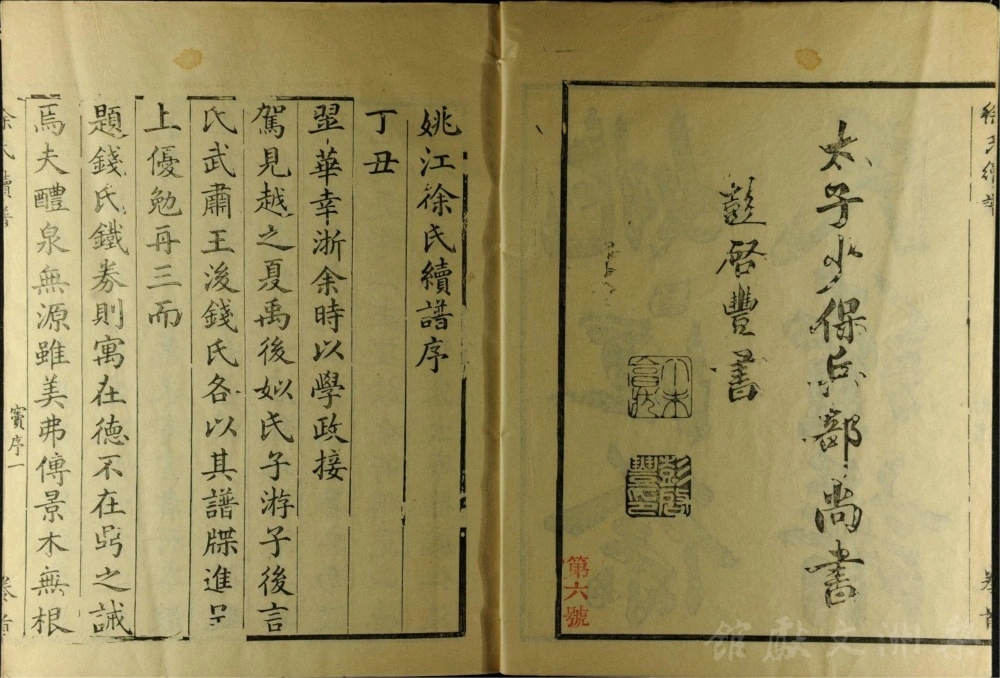 徐氏續譜 卷首
太子少保兵部尚書
彭啓豐書
第六號
姚江徐氏續譜序
丁丑
翠華幸浙余時以學政接
駕見越之夏禹後姒氏子游子後言
氏武肅王後錢氏各以其譜牒進呈
上優勉再三而
題錢氏鐵券則寓在德不在鼎之誡
焉夫醴泉無源雖美弗傳景木無根
徐氏續譜 竇序一 卷首
梨洲文獻館